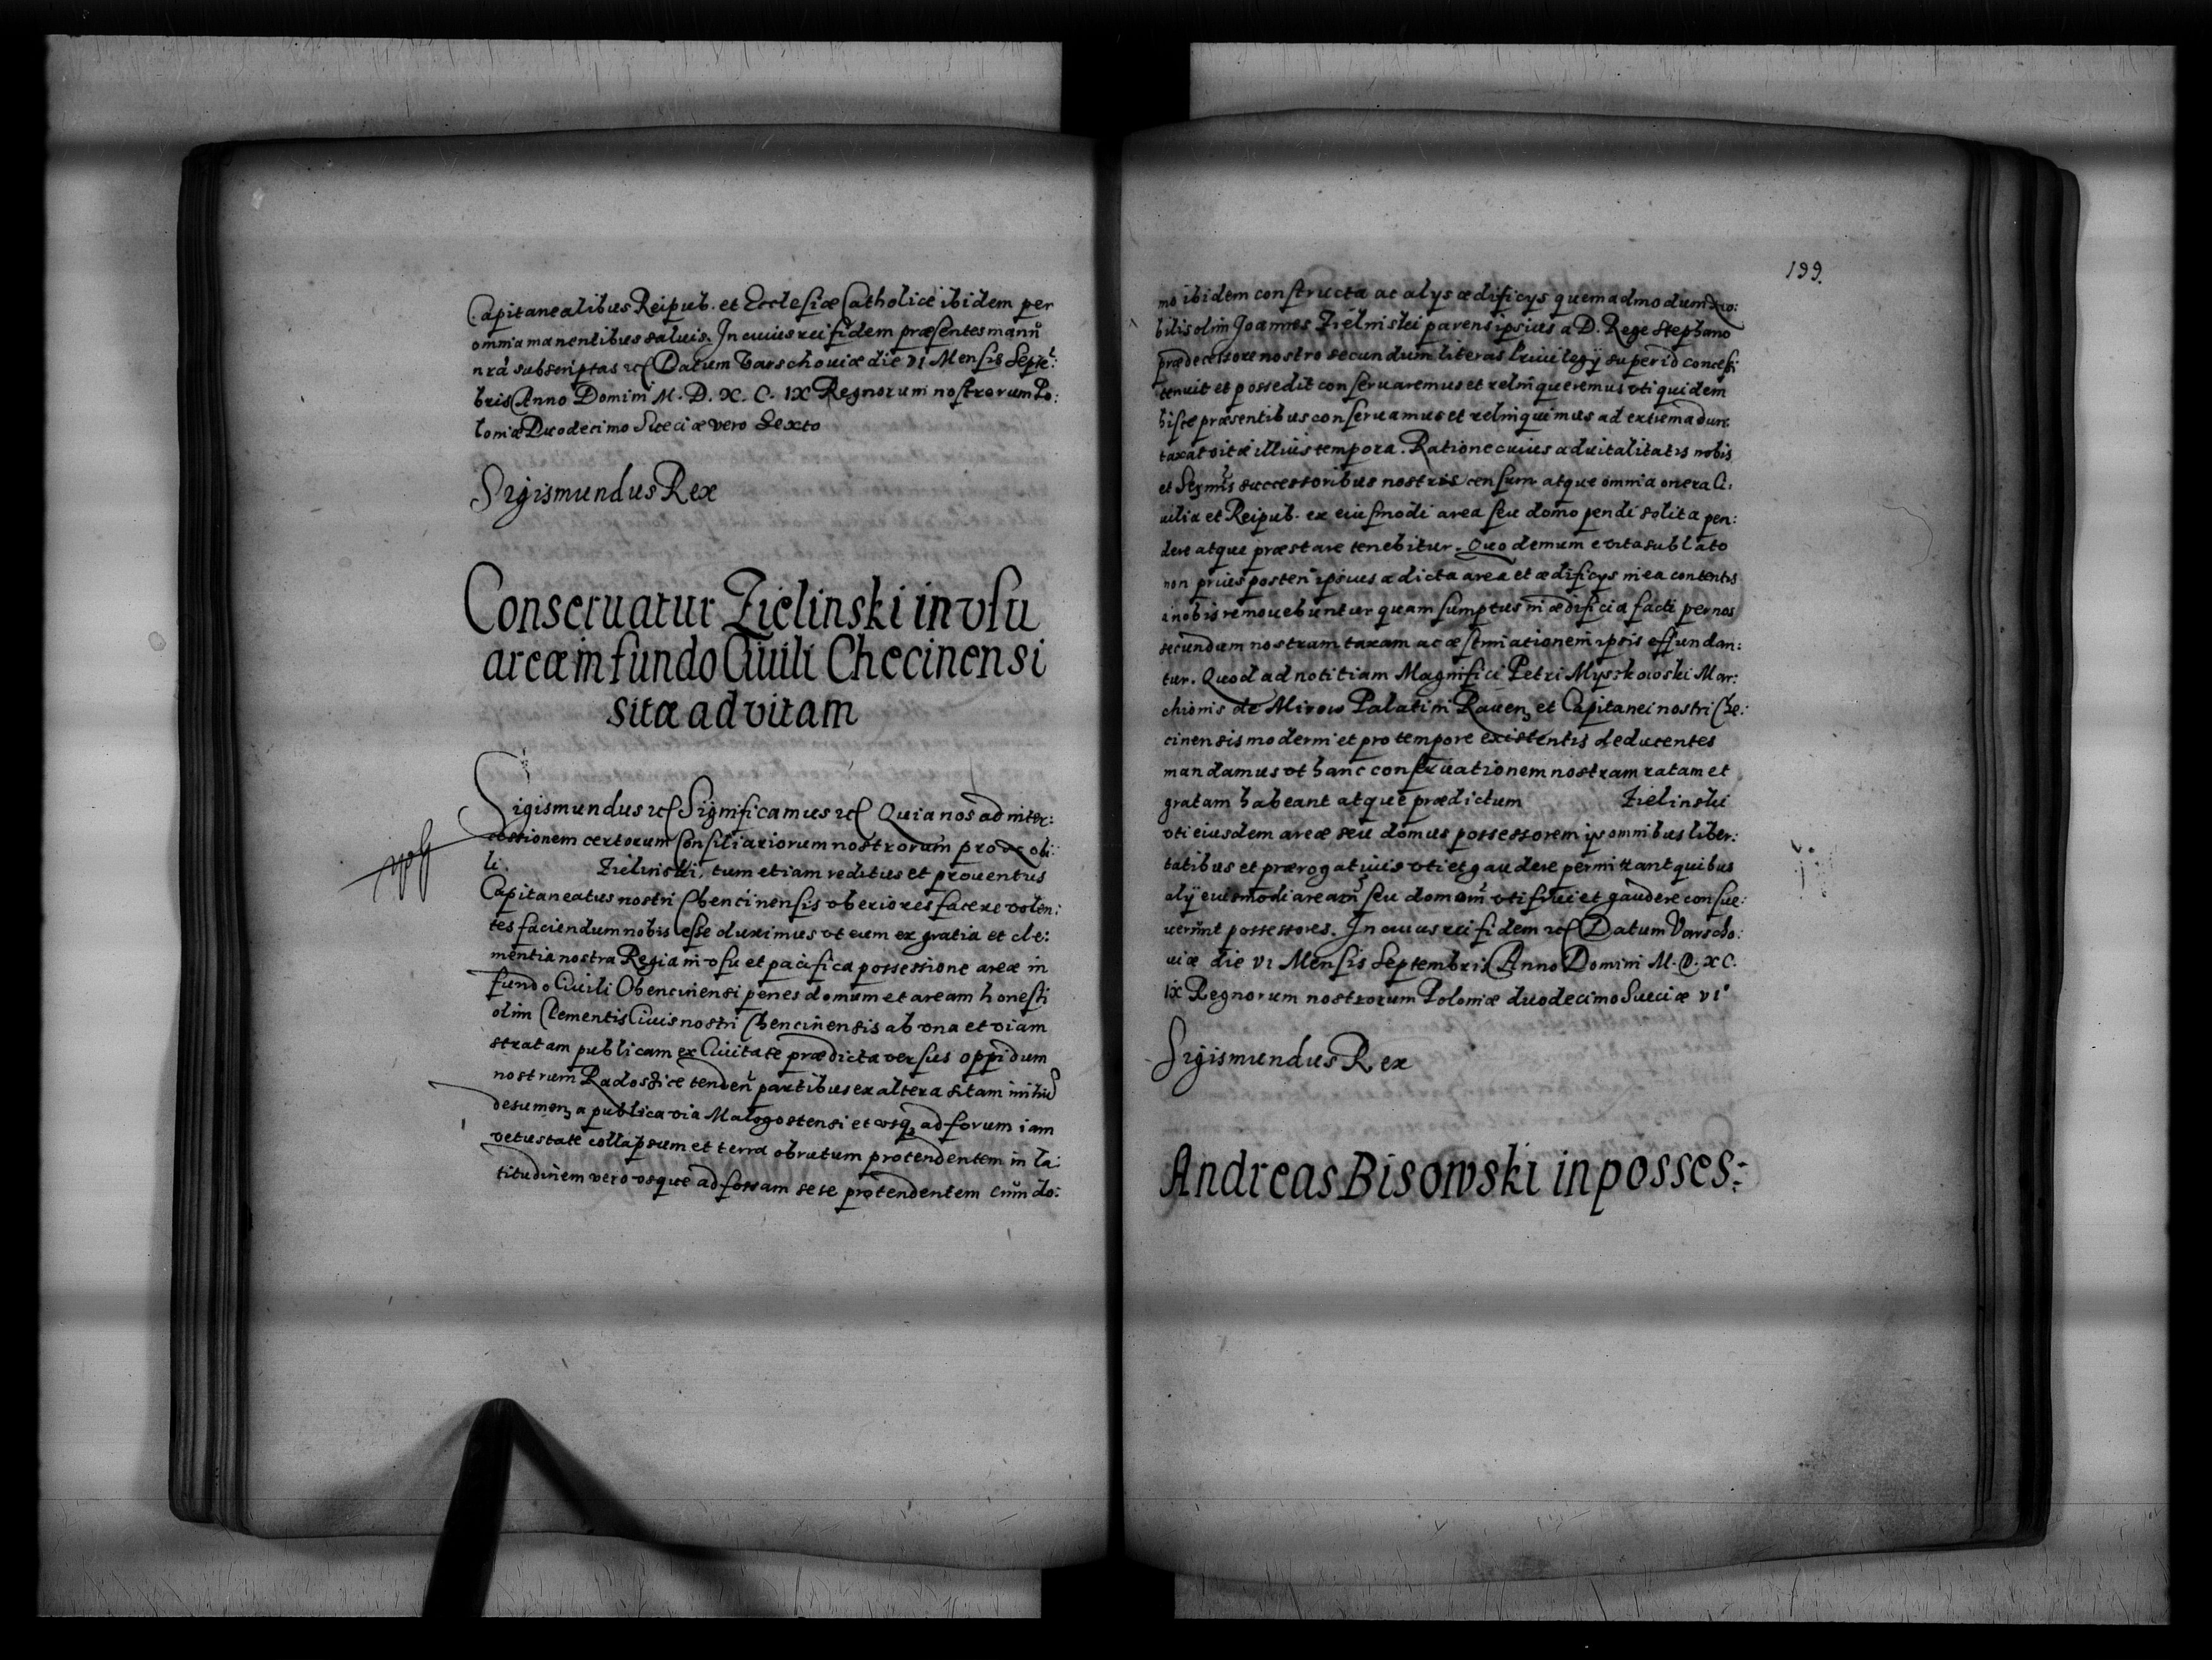 Capitanealibus Reipub. et Ecclesiæ Catholicæ ibidem per
omnia manentibus saluis. In cuius rei fidem præsentes manū
nrā subscriptas etc Datum Varschouiæ die VI Mensis Septē:
bris Anno Domini M. D. X. C. IX Regnorum nostrorum Po:
loniæ Duodecimo Sueciæ vero Sexto
Sigismundus Rex
Conseruatur Zielinski in vsu
areæ in fundo Ciuili Checinensi
sitæ ad vitam
Sigismundus etc Significamus etc Quia nos ad inter:
cessionem certorum Consiliariorum nostrorum pro Nobi:
li Zielinski, tum etiam reditus et prouentus
Capitaneatus nostri Chencinensis vberiores facere volen:
tes faciendum nobis esse duximus vt eum ex gratia et cle:
mentia nostra Regia in vsu et pacifica possessione areæ in
fundo Ciuili Chencinensi penes domum et aream honesti
olim Clementis Ciuis nostri Chencinensis ab vna et viam
stratam publicam ex Ciuitate prædicta versus oppidum
nostrum Radoszice tendeñ partibus ex altera sitam initiū
desumeñ a publica via Malogostensi et vsq₃ ad forum iam
vetustate collapsum et terra obrutum protendentem in la:
titudinem vero vsque ad fossam sese protendentem cum do:
199.
mo ibidem constructa ac alys ædificys quemadmodum No:
bilis olim Joannes Zielinski parens ipsius a D. Rege Stephano
prædecessore nostro secundum literas Priuilegÿ super id concessi
tenuit et possedit conseruaremus et relinqueremus vti quidem
hisce præsentibus conseruamus et relinquimus ad extrema dun:
taxat vitæ illius tempora. Ratione cuius aduitalitatis nobis
et Sermis successoribus nostris censum atque omnia onera Ci:
uilia et Reipub. ex eiusmodi area seu domo pendi solita pen:
dere atque præstare tenebitur. Quo demum e vita sublato
non prius posteri ipsius a dicta area et ædificys in ea contentis
a nobis remouebuntur quam sumptus in ædificia facti per nos
secundum nostram taxam ac æstimationem ipsis effundan:
tur. Quod ad notitiam Magnifici Petri Myszkowski Mar:
chionis de Mirow Palatini Raueñ et Capitanei nostri Che:
cinensis moderni et pro tempore existentis deducentes
mandamus vt hanc conseruationem nostram ratam et
gratam habeant atque prædictum Zielinski
vti eiusdem areæ seu domus possessorem ijs omnibus liber:
tatibus et prærogatiuis vti et gaudere permittant quibus
alÿ eiusmodi arearū seu domorū vti frui et gaudere consue:
uerunt possessores. In cuius rei fidem etc Datum Varscho:
uiæ die VI Mensis Septembris Anno Domini M. D. XC.
IX Regnorum nostrorum Poloniæ duodecimo Sueciæ VIº
Sigismundus Rex
Andreas Bisowski in posses: